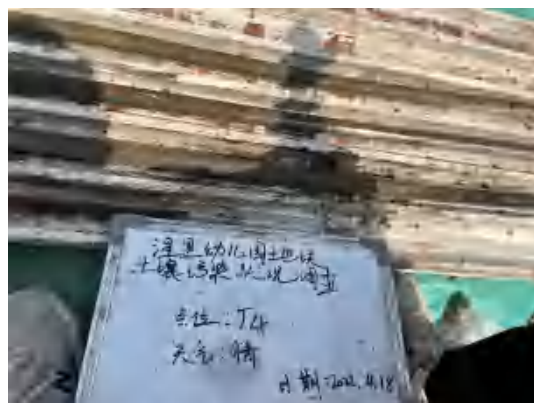 幼儿园地块
土壤污染状况调查
点位:T4
天气:晴
日期:2022.11.18